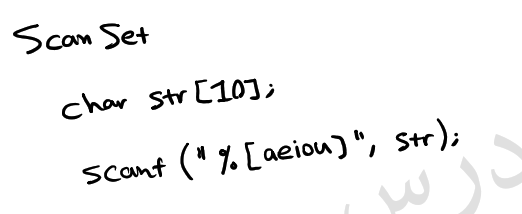 Scan Set
char str[10];
scanf ("%[aeiou]", str);
درس